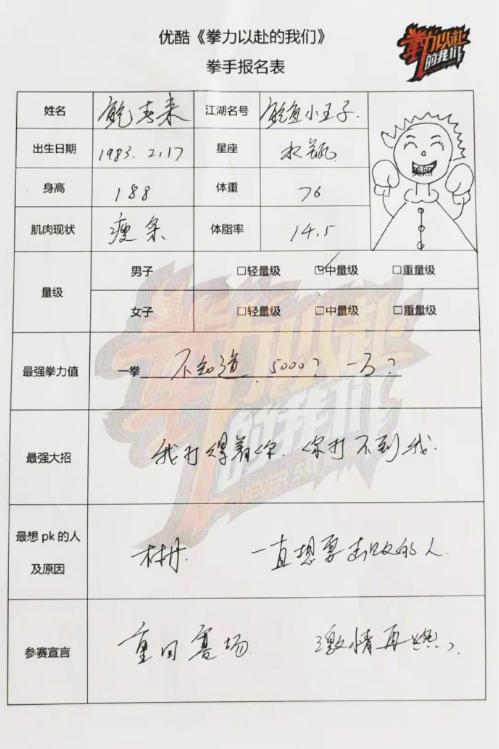 优酷《拳力以赴的我们》
拳力以赴
的我们
拳手报名表
姓名 鲍春来 江湖名号 鲍鱼小王子.
出生日期 1983.2.17 星座 水瓶
身高 188 体重 76
肌肉现状 瘦条 体脂率 14.5
量级 男子 □轻量级 ☑中量级 □重量级
女子 □轻量级 □中量级 □重量级
最强拳力值 一拳 不知道. 5000? 一万?
最强大招 我打得着你. 你打不到我.
最想pk的人及原因 林丹. 一直想要击败的人.
参赛宣言 重回赛场 激情再燃.